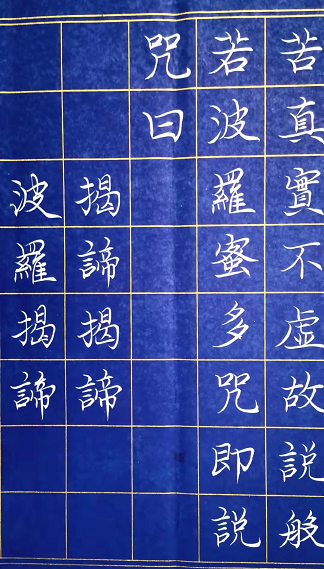 苦真實不虛故説般
若波羅蜜多咒即説
咒曰
揭諦揭諦
波羅揭諦